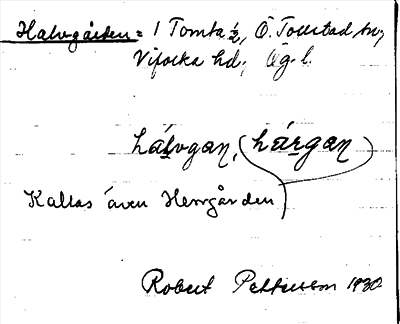 Halvgården = 1 Tomta ½, Ö. Tollstad sn,
Vifolka hd, Ög. l.
hálvgan, (hárgan)
Kallas även Herrgården)
Robert Pettersson 1930